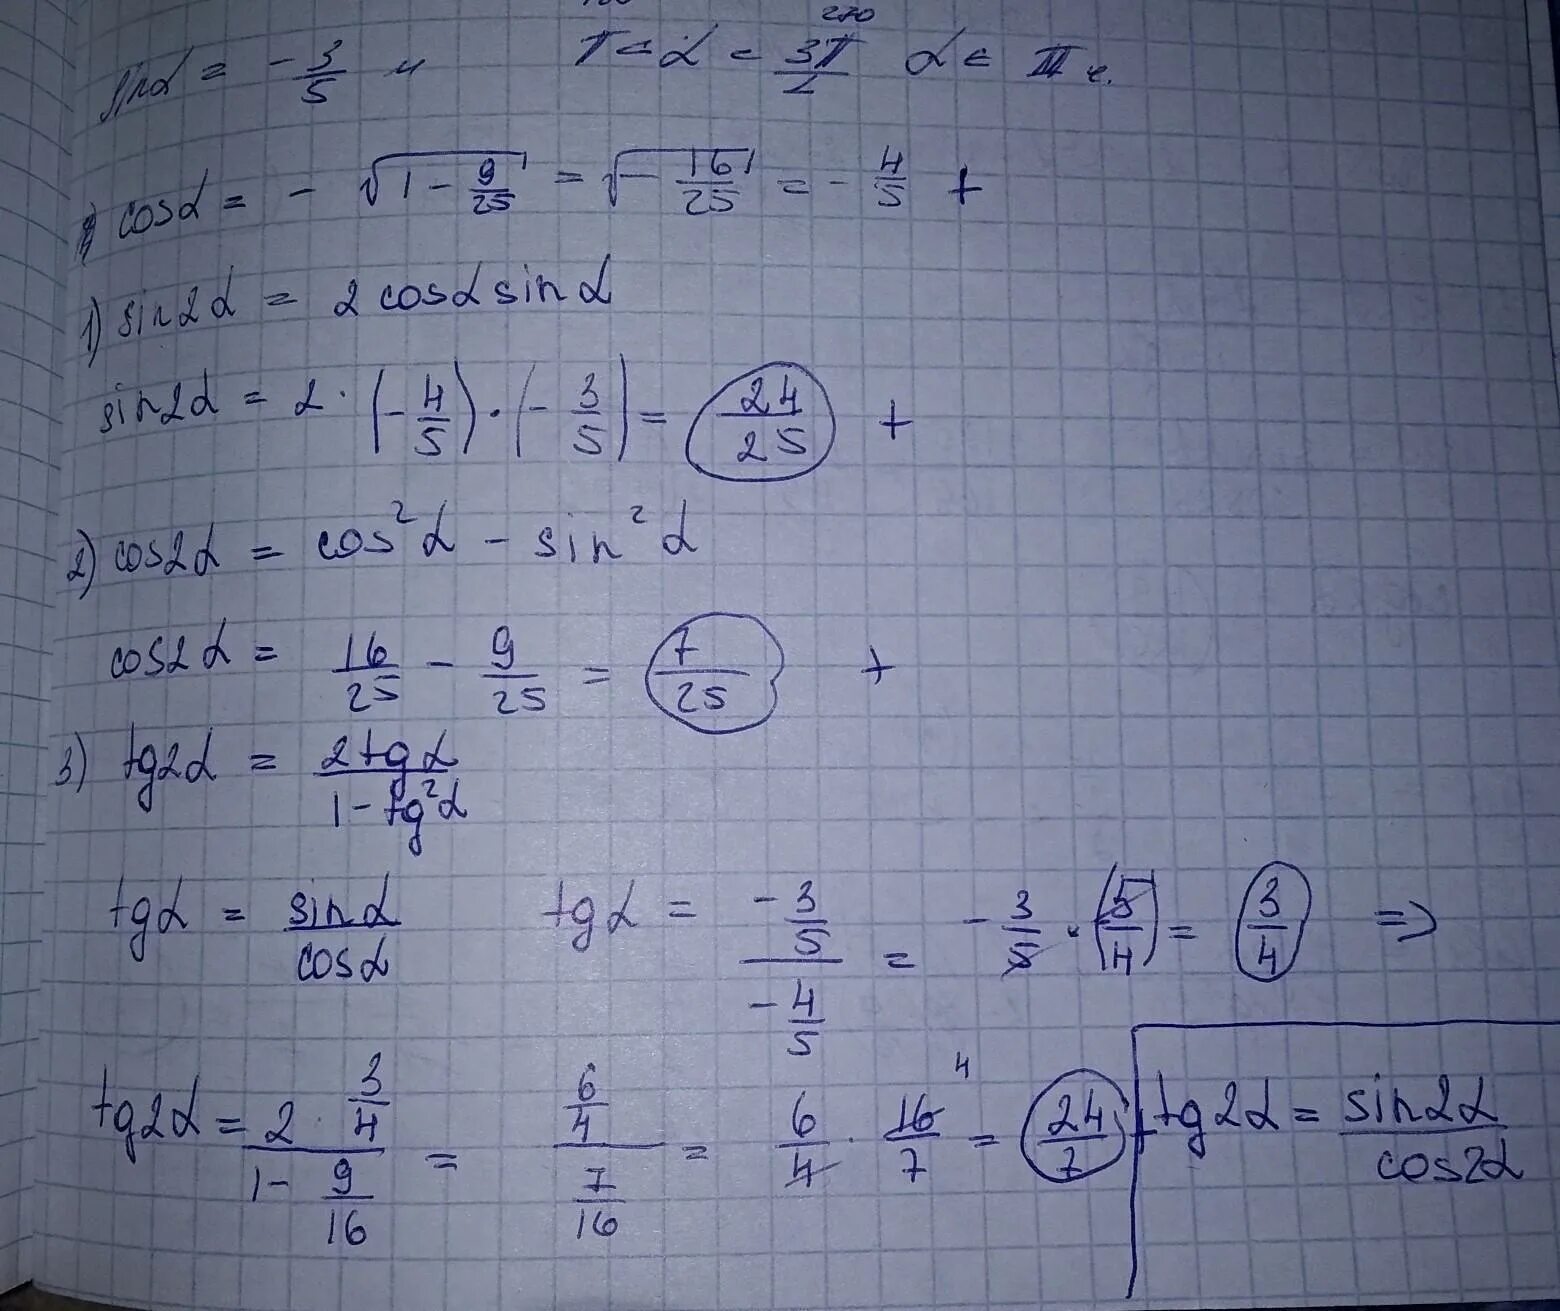 270
sinα = -3/5 и π < α < 3π/2 α ∈ III ч.
cosα = - √(1 - 9/25) = √(- 16/25) = - 4/5 +
1) sin2α = 2cosα sinα
sin2α = 2 · (-4/5) · (-3/5) = 24/25 +
2) cos2α = cos²α - sin²α
cos2α = 16/25 - 9/25 = 7/25 +
3) tg2α = 2tgα/(1 - tg²α)
tgα = sinα/cosα tgα = (-3/5)/(-4/5) = -3/5 · (-5/4) = 3/4 =>
tg2α = (2 · 3/4)/(1 - 9/16) = (6/4)/(7/16) = 6/4 · 16/7 = 24/7
4
tg2α = sin2α/cos2α